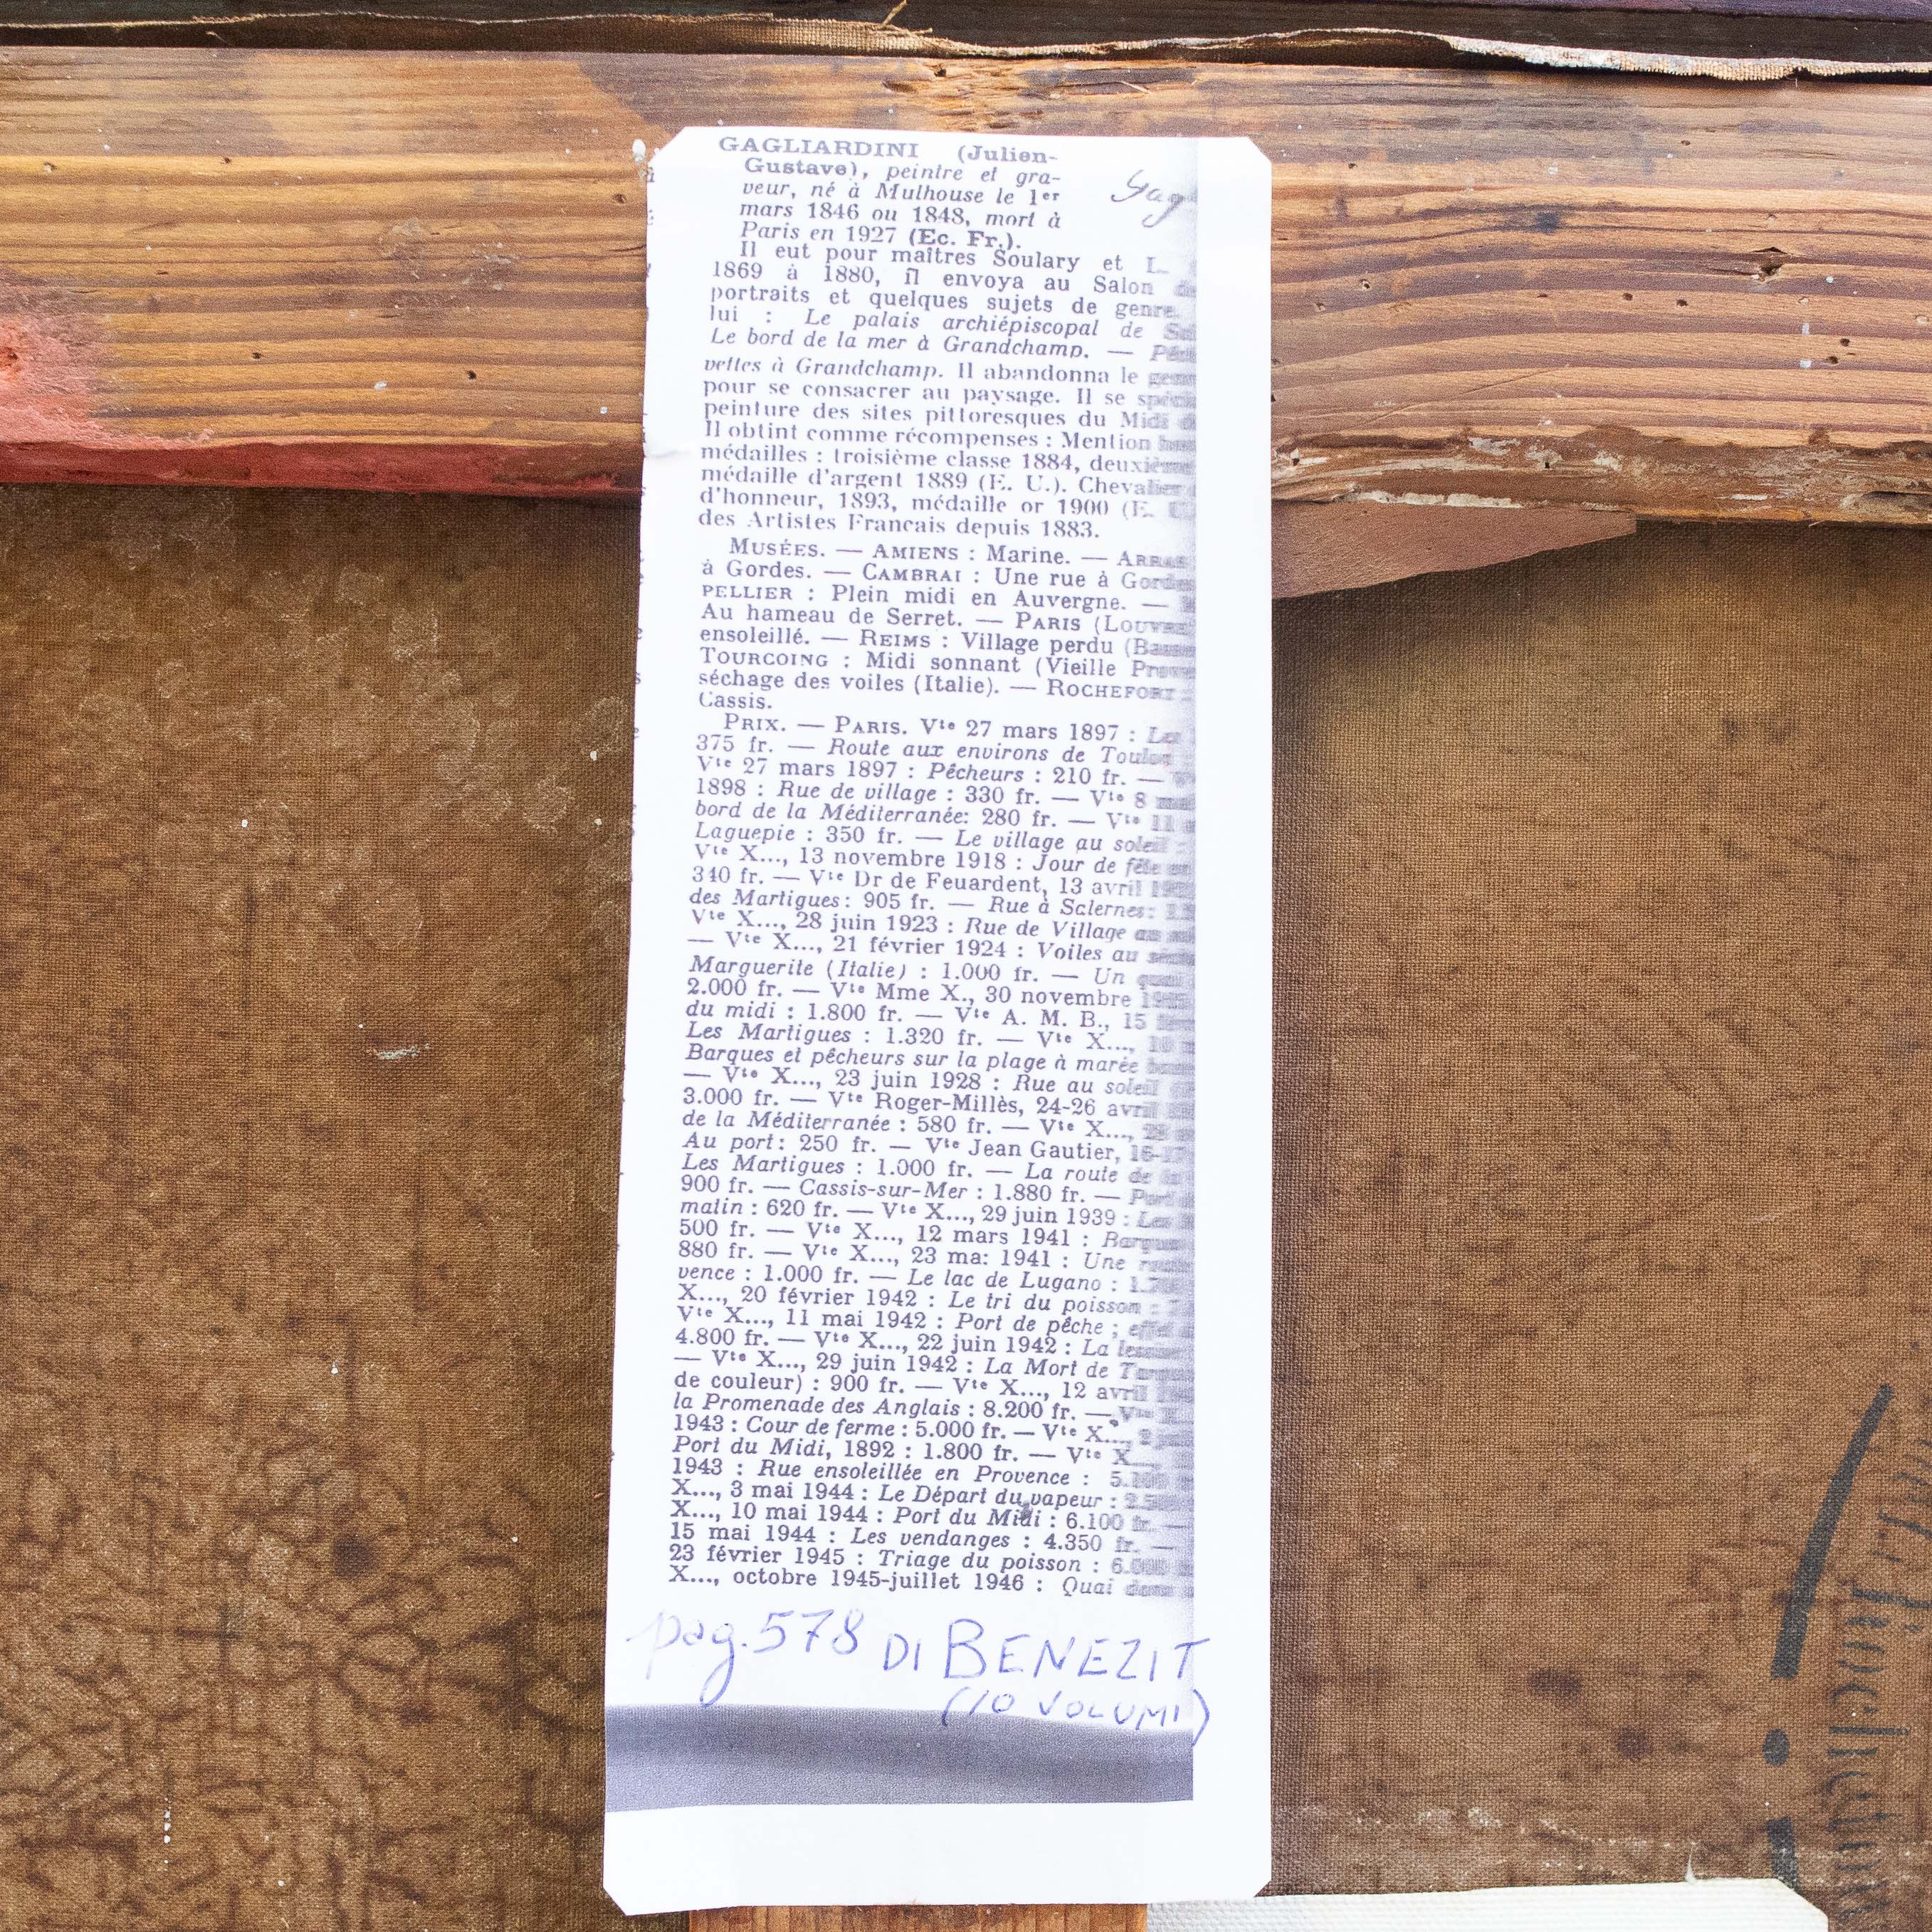 GAGLIARDINI (Julien-
Gustave), peintre et gra-
veur, né à Mulhouse le 1er
mars 1846 ou 1848, mort à
Paris en 1927 (Ec. Fr.).
Gag
Il eut pour maîtres Soulary et L.
1869 à 1880, il envoya au Salon
portraits et quelques sujets de genre.
lui : Le palais archiépiscopal de
Le bord de la mer à Grandchamp. —
vettes à Grandchamp. Il abandonna le
pour se consacrer au paysage. Il se
peinture des sites pittoresques du Midi
Il obtint comme récompenses : Mention
médailles : troisième classe 1884, deuxième
médaille d'argent 1889 (E. U.). Chevalier
d'honneur, 1893, médaille or 1900 (E.
des Artistes Francais depuis 1883.
MUSÉES. — AMIENS : Marine. — ARRAS
à Gordes. — CAMBRAI : Une rue à Gordes
PELLIER : Plein midi en Auvergne. —
Au hameau de Serret. — PARIS (LOUVRE
ensoleillé. — REIMS : Village perdu
TOURCOING : Midi sonnant (Vieille
séchage des voiles (Italie). — ROCHEFORT
Cassis.
PRIX. — PARIS. Vte 27 mars 1897 :
375 fr. — Route aux environs de Toulon
Vte 27 mars 1897 : Pêcheurs : 210 fr. —
1898 : Rue de village : 330 fr. — Vte 8
bord de la Méditerranée: 280 fr. — Vte 11
Laguepie : 350 fr. — Le village au soleil :
Vte X..., 13 novembre 1918 : Jour de fête
340 fr. — Vte Dr de Feuardent, 13 avril
des Martigues: 905 fr. — Rue à Salernes:
Vte X..., 28 juin 1923 : Rue de Village au
— Vte X..., 21 février 1924 : Voiles au
Marguerite (Italie) : 1.000 fr. — Un
2.000 fr. — Vte Mme X., 30 novembre
du midi : 1.800 fr. — Vte A. M. B., 15
Les Martigues : 1.320 fr. — Vte X...,
Barques et pêcheurs sur la plage à marée
— Vte X..., 23 juin 1928 : Rue au soleil
3.000 fr. — Vte Roger-Millès, 24-26 avril
de la Méditerranée : 580 fr. — Vte X...,
Au port: 250 fr. — Vte Jean Gautier,
Les Martigues : 1.000 fr. — La route de
900 fr. — Cassis-sur-Mer : 1.880 fr. —
matin : 620 fr. — Vte X..., 29 juin 1939 :
500 fr. — Vte X..., 12 mars 1941 :
880 fr. — Vte X..., 23 ma: 1941 : Une
vence : 1.000 fr. — Le lac de Lugano :
X..., 20 février 1942 : Le tri du poisson :
Vte X..., 11 mai 1942 : Port de pêche ;
4.800 fr. — Vte X..., 22 juin 1942 : La
— Vte X..., 29 juin 1942 : La Mort de
de couleur) : 900 fr. — Vte X..., 12 avril
la Promenade des Anglais : 8.200 fr. — Vte
1943 : Cour de ferme : 5.000 fr. — Vte X...,
Port du Midi, 1892 : 1.800 fr. — Vte X
1943 : Rue ensoleillée en Provence :
X..., 3 mai 1944 : Le Départ du vapeur :
X..., 10 mai 1944 : Port du Midi : 6.100 fr. —
15 mai 1944 : Les vendanges : 4.350 fr. —
23 février 1945 : Triage du poisson :
X..., octobre 1945-juillet 1946 : Quai
pag. 578 DI BENEZIT
(10 VOLUMI)